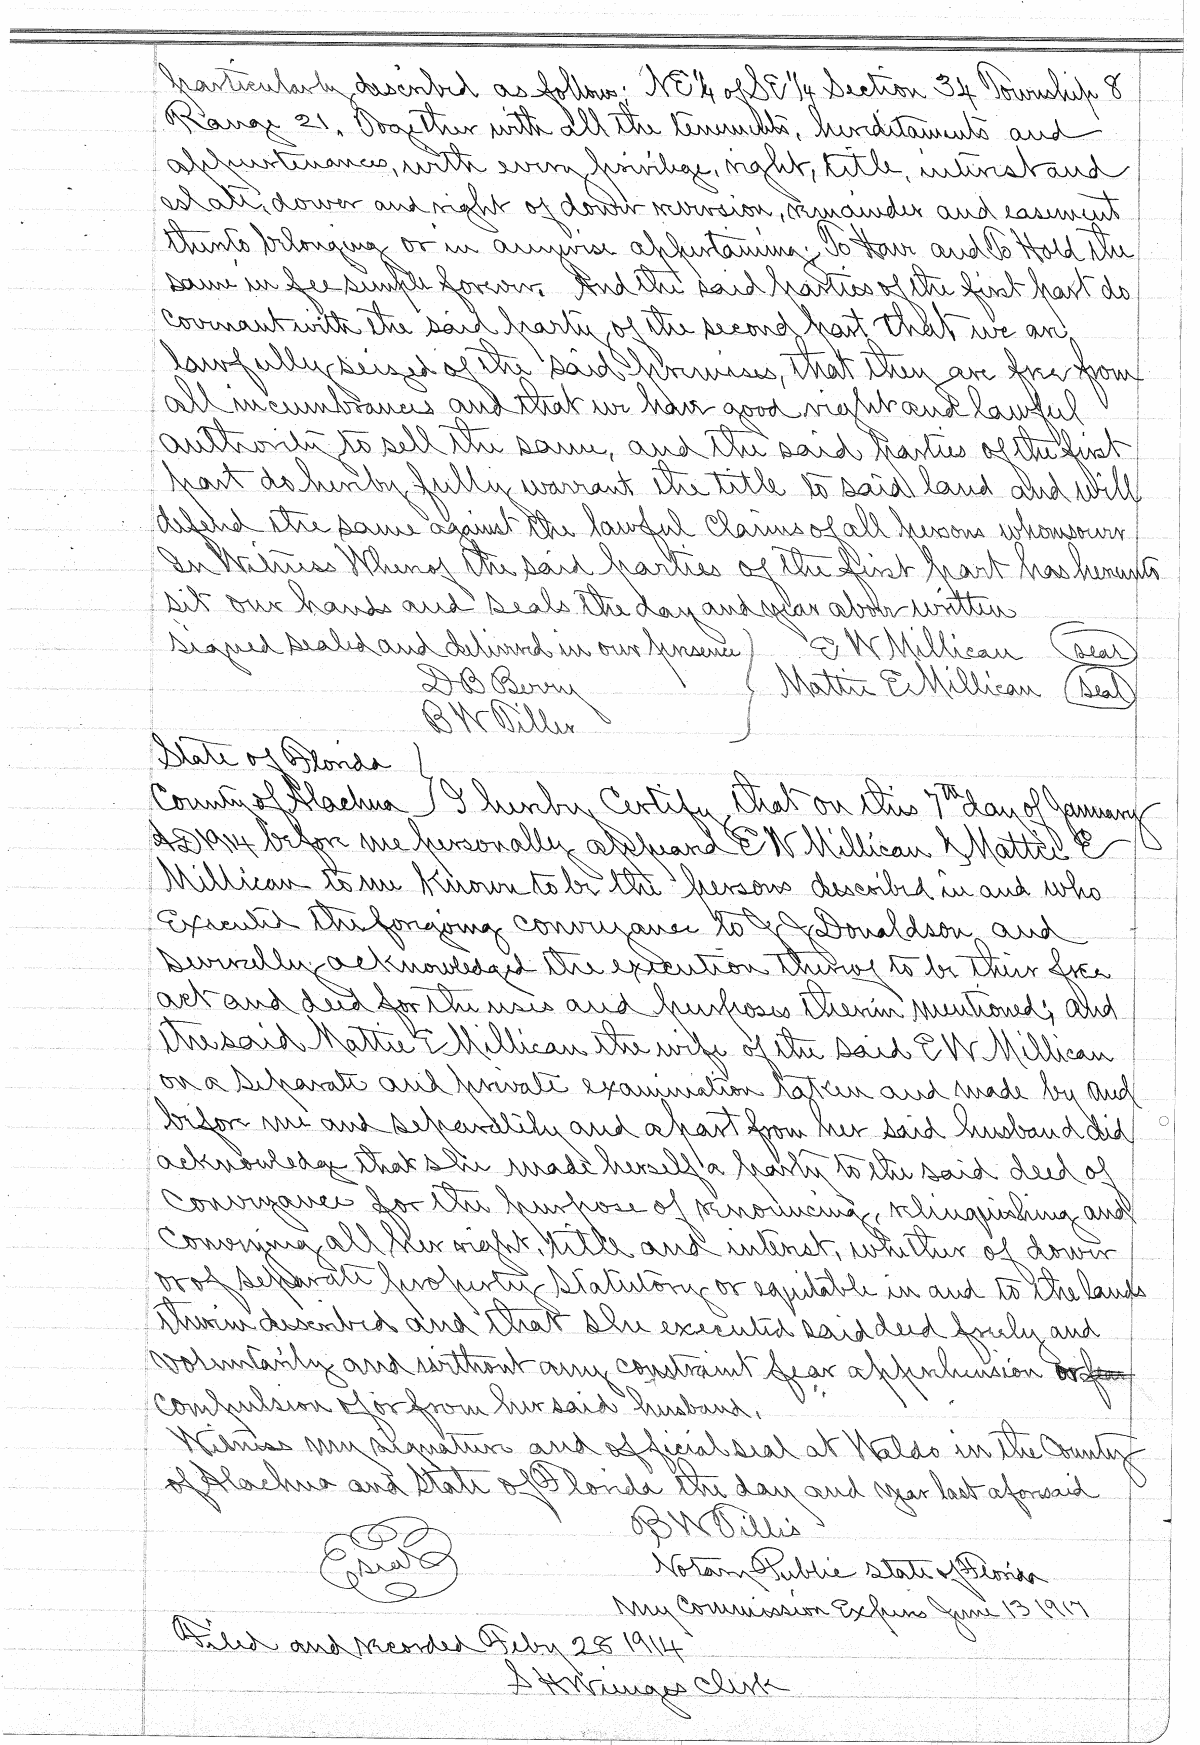 particularly described as follows: NE 1/4 of SE 1/4 Section 34 Township 8
Range 21. Together with all the tenements, hereditaments and
appurtenances, with every privilege, right, title, interest and
estate, dower and right of dower reversion, remainder and easement
thereto belonging or in anywise appertaining: To Have and To Hold the
same in fee simple forever. And the said parties of the first part do
covenant with the said party of the second part that we are
lawfully seized of the said premises, that they are free from
all incumbrances and that we have good right and lawful
authority to sell the same, and the said parties of the first
part do hereby fully warrant the title to said land and will
defend the same against the lawful claims of all persons whomsoever
In Witness Whereof the said parties of the first part has hereunto
set our hands and seals the day and year above written
Signed sealed and delivered in our presence ) E W Millican (Seal)
D B Berry ) Mattie E Millican (Seal)
B W Tillis
State of Florida
County of Alachua ) I hereby Certify that on this 7th day of January
AD 1914 before me personally appeard E W Millican & Mattie E
Millican to me known to be the persons described in and who
Executed the forgoing conveyance to J J Donaldson and
severally acknowledged the execution thereof to be their free
act and deed for the uses and purposes therein mentioned; and
the said Mattie E Millican the wife of the said E W Millican
on a separate and private examination taken and made by and
before me and separately and apart from her said husband did
acknowledge that she made herself a party to the said deed of
Conveyance for the purpose of renouncing, relinquishing and
Conveying all her right, title and interest, whether of dower
or of separate property statutory or equitable in and to the lands
therein described and that she executed said deed freely and
voluntarily and without any constraint fear apprehension or fear
compulsion of or from her said husband.
Witness my signature and official seal at Waldo in the County
of Alachua and State of Florida the day and year last aforesaid
B W Tillis
Seal
Notary Public State of Florida
My Commission Expires June 13 1917
Filed and recorded Feby 28 1914
S H Wienges Clerk